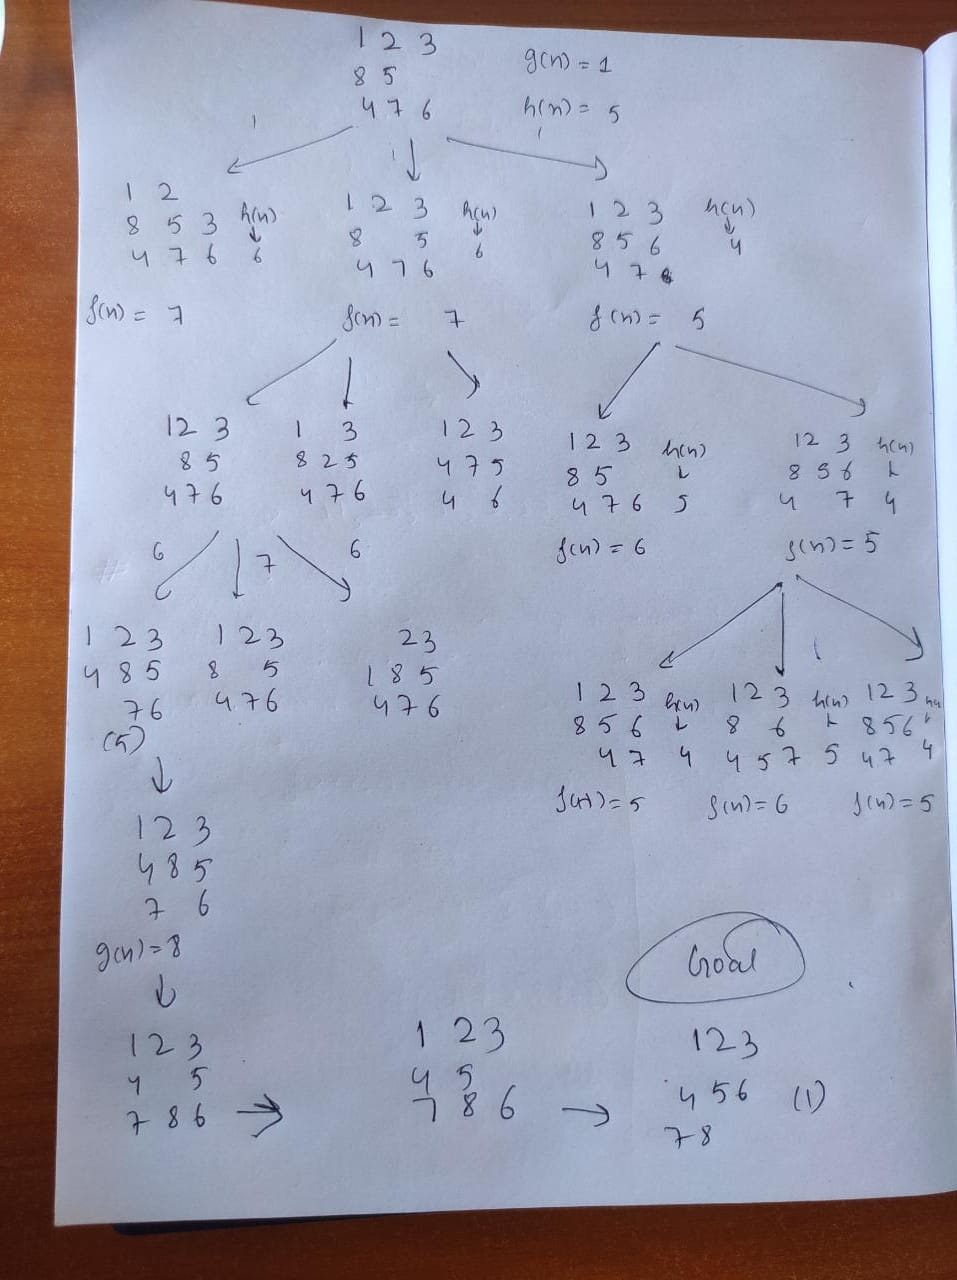 1 2 3
8 5
4 7 6
g(n) = 1
h(n) = 5
1 2
8 5 3
4 7 6
h(n)
↓
6
f(n) = 7
1 2 3
8 5
4 7 6
h(n)
↓
6
f(n) = 7
1 2 3
8 5 6
4 7
h(n)
↓
4
f(n) = 5
1 2 3
8 5
4 7 6
1 3
8 2 5
4 7 6
1 2 3
4 7 5
4 6
1 2 3
8 5
4 7 6
h(n)
↓
5
f(n) = 6
1 2 3
8 5 6
4 7
h(n)
↓
4
f(n) = 5
6
7
6
1 2 3
4 8 5
7 6
(5)
1 2 3
8 5
4 7 6
2 3
1 8 5
4 7 6
1 2 3
8 5 6
4 7
h(n)
↓
4
f(n) = 5
1 2 3
8 6
4 5 7
h(n)
↓
5
f(n) = 6
1 2 3
8 5 6
4 7
h(n)
↓
4
f(n) = 5
1 2 3
4 8 5
7 6
g(n) = 8
Goal
1 2 3
4 5
7 8 6
1 2 3
4 5
7 8 6
1 2 3
4 5 6 (1)
7 8